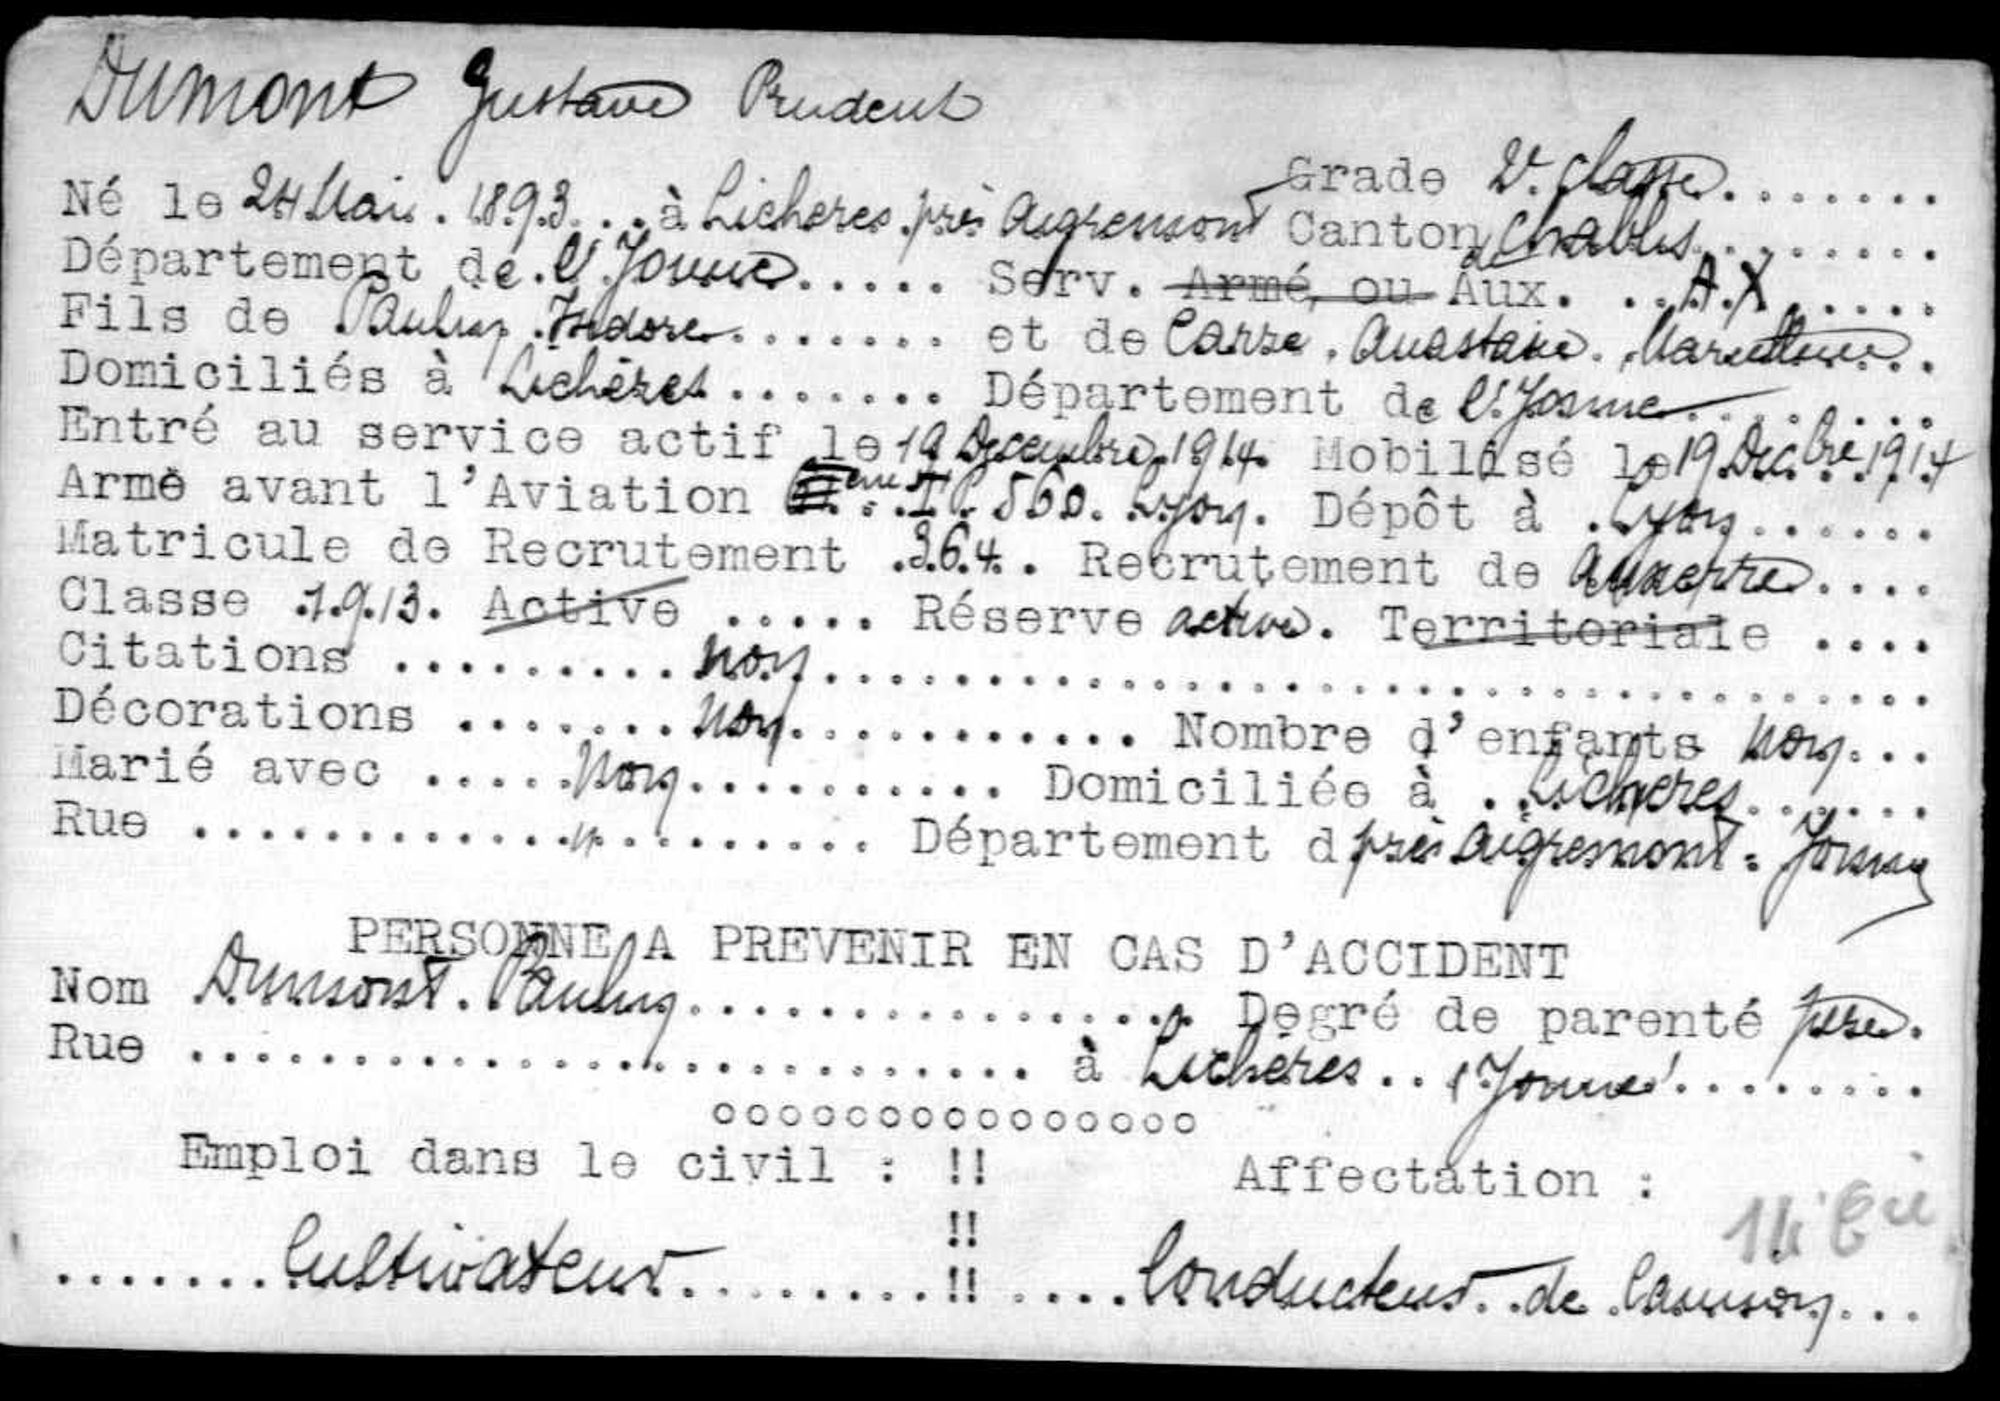 Dumont Gustave Prudent
Grade 2e classe
Né le 24 Mai 1893 à Licheres près Aigremont Canton Chablis
Département de l'Yonne Serv. Armé, ou Aux. A.X
Fils de Paulin Isidore et de Carré Anastasie
Domiciliés à Lichères Département de l'Yonne
Entré au service actif le 19 Decembre 1914 Mobilisé le 19 Decbre 1914
Arme avant l'Aviation 560. Lyon. Dépôt à Lyon
Matricule de Recrutement 364 Recrutement de Auxerre
Classe 1913. Active Réserve active. Territoriale
Citations non
Décorations non Nombre d'enfants non
Marié avec Non Domiciliée à Licheres
Rue " Département d près Aigremont = Yonne
PERSONNE A PREVENIR EN CAS D'ACCIDENT
Nom Dumont Paulin Degré de parenté père.
Rue à Lichères (Yonne)
oooooooooooooooo
Emploi dans le civil : !! Affectation :
!!
Cultivateur !! Conducteur de Camion